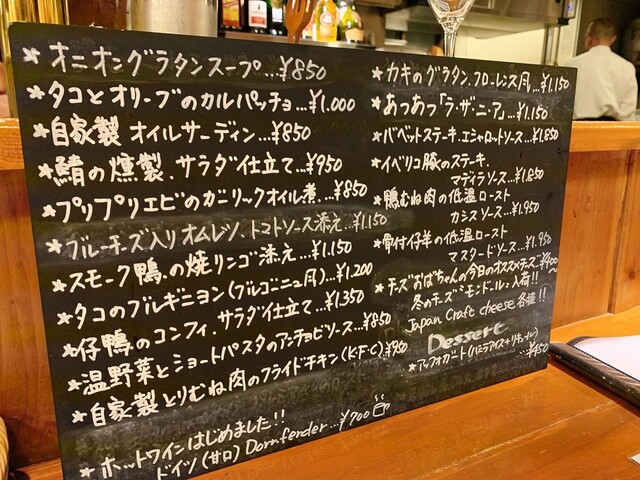 * オニオングラタンスープ…¥850
* タコとオリーブのカルパッチョ…¥1.000
* 自家製オイルサーディン…¥850
* 鯖の燻製.サラダ仕立て…¥950
* プリプリエビのガーリックオイル煮…¥850
* ブルーチーズ入りオムレツ.トマトソース添え…¥1.150
* スモーク鴨.の焼リンゴ添え…¥1.150
* タコのブルギニヨン(ブルゴーニュ風)…¥1.200
* 仔鴨のコンフィ.サラダ仕立て…¥1.350
* 温野菜とショートパスタのアンチョビソース…¥850
* 自家製とりむね肉のフライドチキン(K・F・C)¥950
* ホットワインはじめました!!
ドイツ(甘口)Dornfender…¥700
* カキのグラタン.フローレンス風…¥1.150
* あつあつ「ラ・ザ・ニ・ア」…¥1.150
* バベットステーキ.エシャロットソース…¥1.850
* イベリコ豚のステーキ.
マディラソース…¥1.850
* 鴨むね肉の低温ロースト
カシスソース…¥1.950
* 骨付仔羊の低温ロースト
マスタードソース…¥1.950
* チーズおばちゃんの今日のオススメチーズ¥400~
冬のチーズ"モンドール"入荷!!
Japan Craft cheese 各種!!
Dessert
* アッフォガート(バニラアイス+リキュール)
…¥450